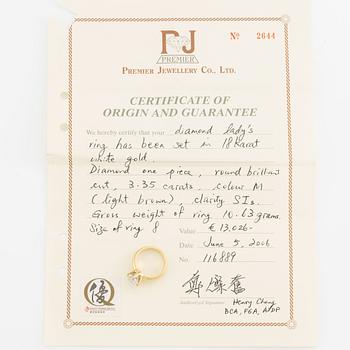 PJ
PREMIER
Nº 2644
PREMIER JEWELLERY CO., LTD.
CERTIFICATE OF
ORIGIN AND GUARANTEE
We hereby certify that your diamond lady's
ring has been set in 18 Karat
white gold.
Diamond one piece, round brilliant
cut, 3.35 carats, colour M
(light brown), clarity SI₂.
Gross weight of ring 10.63 grams.
Size of ring 8
Value € 13,026-
Date June 5, 2006
No. 116889
優
Authorized Signature Henry Cheng
DCA, FGA,